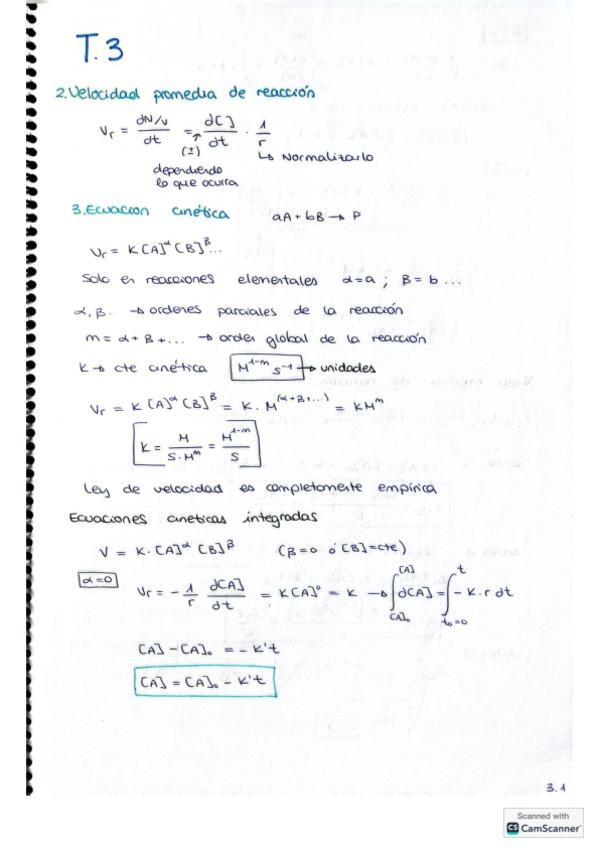 T.3
2. Velocidad promedia de reacción
Vr = dN/V / dt = (±) d[ ]/dt · 1/r
↳ Normalizarlo
dependiendo
lo que ocurra
3. Ecuacion cinética aA + bB → P
Vr = K[A]^α [B]^β ...
Solo en reacciones elementales α=a ; β=b ...
α, β. → ordenes parciales de la reacción
m = α + β + ... → orden global de la reacción
K → cte cinética M^1-m s^-1 → unidades
Vr = K [A]^α [B]^β = K. M^(α+β+...) = KM^m
K = M / S·M^m = M^1-m / S
Ley de velocidad es completamente empírica
Ecuaciones cineticas integradas
V = K·[A]^α [B]^β (β=0 ó [B]=cte)
α=0
Vr = - 1/r d[A]/dt = K[A]^0 = K → ∫[A]₀^[A] d[A] = ∫t₀=0^t -K·r dt
[A] - [A]₀ = - K't
[A] = [A]₀ - K't
3.1
Scanned with
CS CamScanner